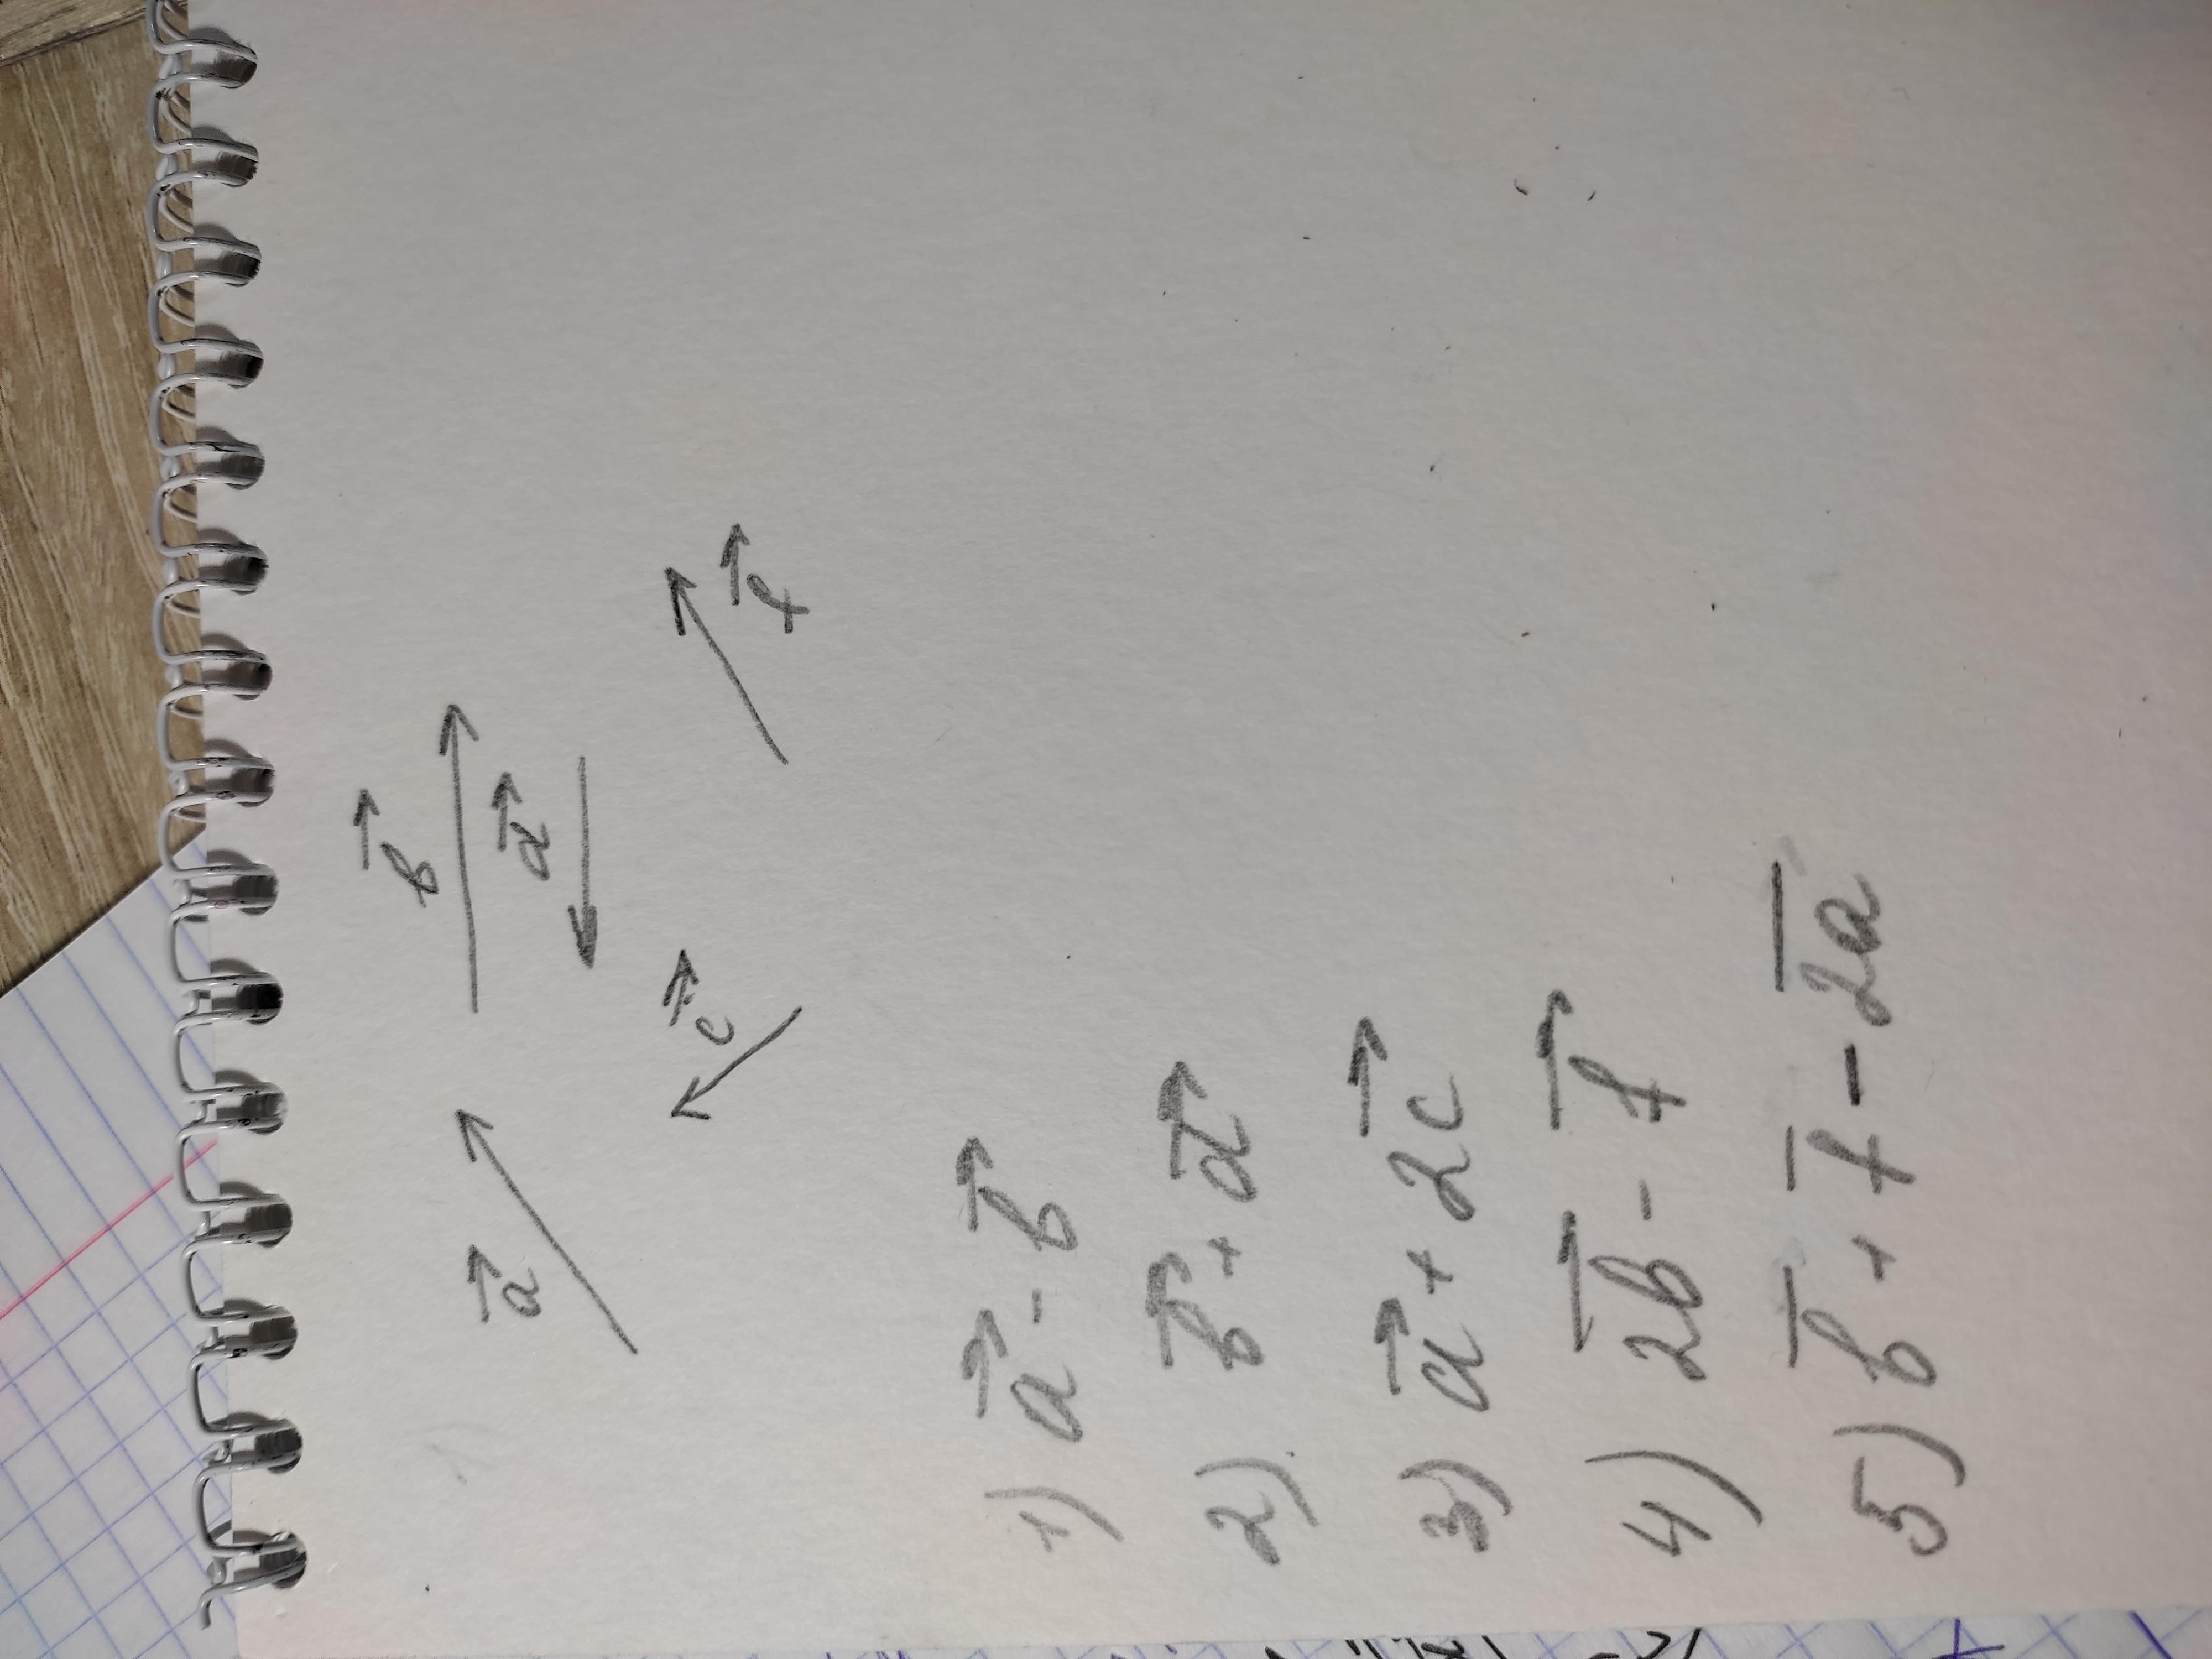 a⃗ b⃗
d⃗
c⃗ f⃗
1) a⃗ - b⃗
2) b⃗ + d⃗
3) a⃗ + 2c⃗
4) 2b⃗ - f⃗
5) b̅ + f̅ - 2a̅